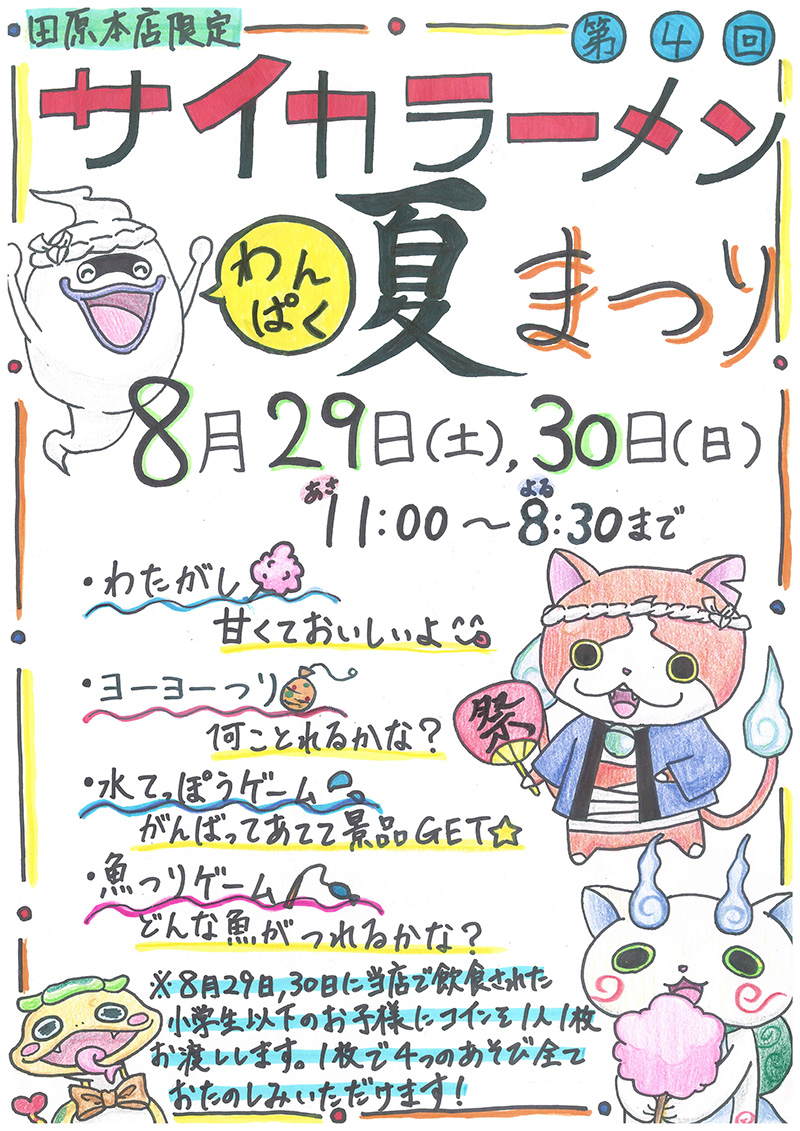 田原本店限定
第4回
サイカラーメン
わんぱく
夏まつり
8月29日(土),30日(日)
あさ よる
11:00～8:30まで
・わたがし
甘くておいしいよ
・ヨーヨーつり
何ことれるかな?
祭
・水てっぽうゲーム
がんばってあてて景品GET☆
・魚つりゲーム
どんな魚がつれるかな?
※8月29日,30日に当店で飲食された
小学生以下のお子様にコインを1人1枚
お渡しします。1枚で4つのあそび全て
おたのしみいただけます!